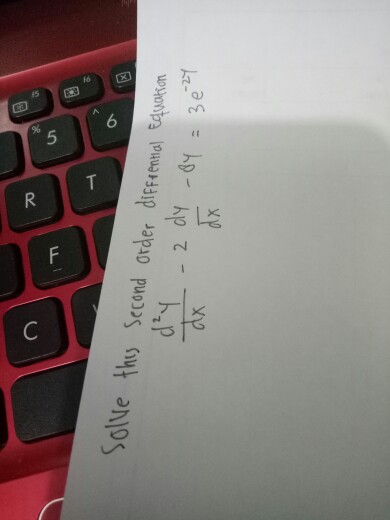 Solve this second order diffrential Equation
d²y/dx - 2 dy/dx - 8y = 3e^-2y
f5 f6
% 5 ^ 6
R T
F
C